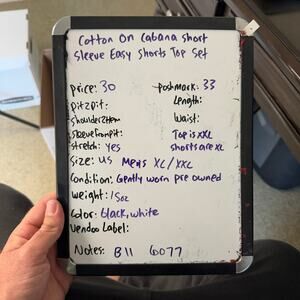 Cotton On Cabana Short
Sleeve Easy Shorts Top Set
price: 30
poshmark: 33
pit2pit:
Length:
Shoulder2Hem
Waist:
Sleevefrompit:
Top is XXL
Stretch: yes
shorts are XL
Size: US Men's XL/XXL
Condition: Gently worn pre owned
Weight: 15oz
Color: black, white
Vendoo Label:
Notes: B11 6077